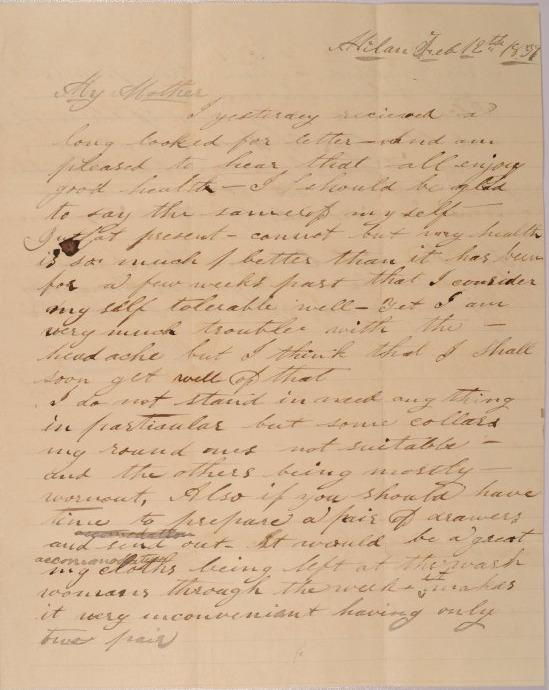 Milan Feb 12th 1837
My Mother
I yesterday recieved a
long looked for letter - and am
pleased to hear that - all enjoy
good health - I should be glad
to say the same of my self -
but at present - cannot but my health
is so much better than it has been
for a few weeks past that I consider
my self tolerable well - yet I am
very much trouble with the -
headache but I think that I shall
soon get well of that
I do not stand in need any thing
in particular but some collars
my round ones not suitable -
and the others being mostly -
wornout, Also if you should have
time to prepare a pair of drawers
and send out - It would be a great
my cloths being left at the wash
womans through the week - it makes
it very inconvenient having only
two pair